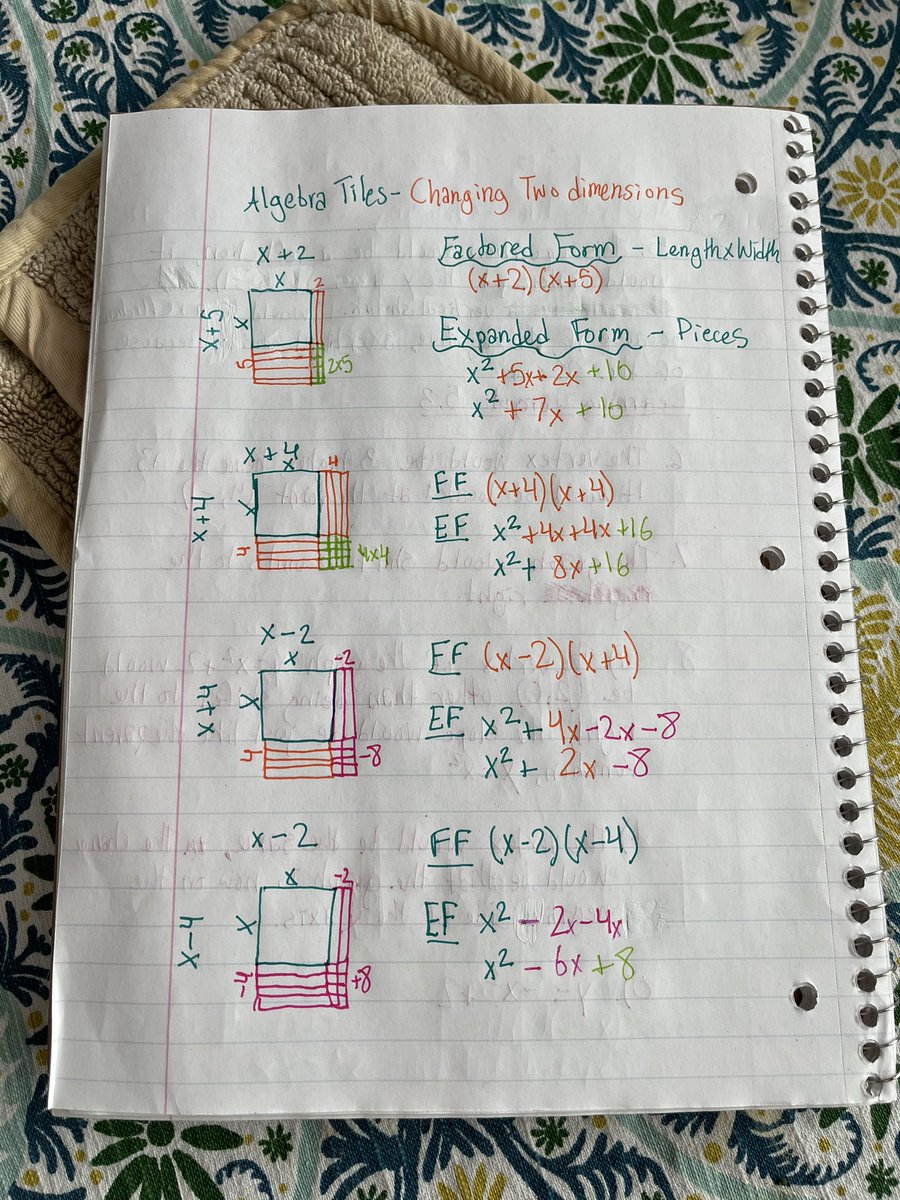 Algebra Tiles - Changing Two dimensions
x + 2
x 2
x + 5
x
5
2x5
Factored Form - Length x Width
(x+2)(x+5)
Expanded Form - Pieces
x² + 5x + 2x + 10
x² + 7x + 10
x + 4
x 4
x + 4
x
4
4x4
FF (x+4)(x+4)
EF x² + 4x + 4x + 16
x² + 8x + 16
x - 2
x -2
x + 4
x
4
-8
FF (x-2)(x+4)
EF x² + 4x - 2x - 8
x² + 2x - 8
x - 2
x -2
x - 4
x
-4
+8
FF (x-2)(x-4)
EF x² - 2x - 4x
x² - 6x + 8